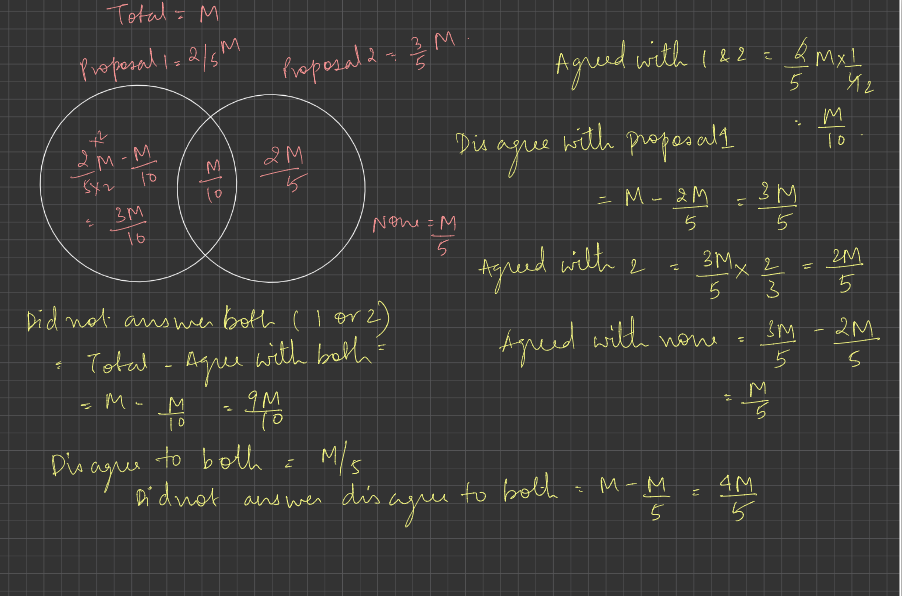 Total = M
Proposal 1 = 2/5 M
Proposal 2 = 3/5 M
2×2/5×2 M - M/10
= 3M/10
M/10
2M/5
None = M/5
Agreed with 1 & 2 = 2/5 M × 1/4 2
= M/10
Disagree with proposal 1
= M - 2M/5 = 3M/5
Agreed with 2 = 3M/5 × 2/3 = 2M/5
Agreed with none = 3M/5 - 2M/5
= M/5
Did not answer both (1 or 2)
= Total - Agree with both =
= M - M/10 = 9M/10
Disagree to both = M/5
Did not answer disagree to both = M - M/5 = 4M/5